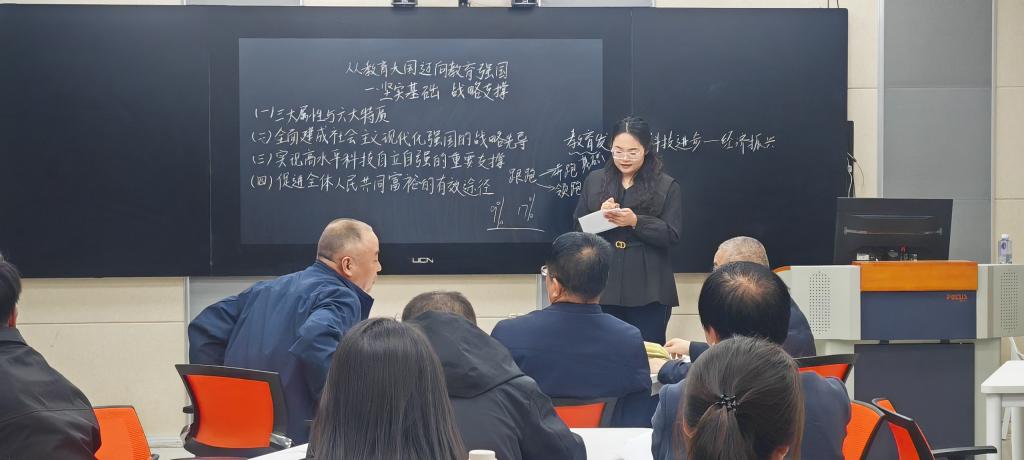 从教育大国迈向教育强国
一.坚实基础 战略支撑
(一)三大属性与六大特质
(二)全面建成社会主义现代化强国的战略先导
(三)实现高水平科技自立自强的重要支撑
(四)促进全体人民共同富裕的有效途径
9% 17%
教育发
科技进步—经济振兴
跟跑
领跑
UCN
FOCUS